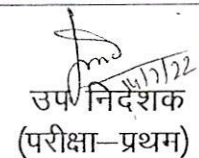 14/7/22
उप निदेशक
(परीक्षा–प्रथम)